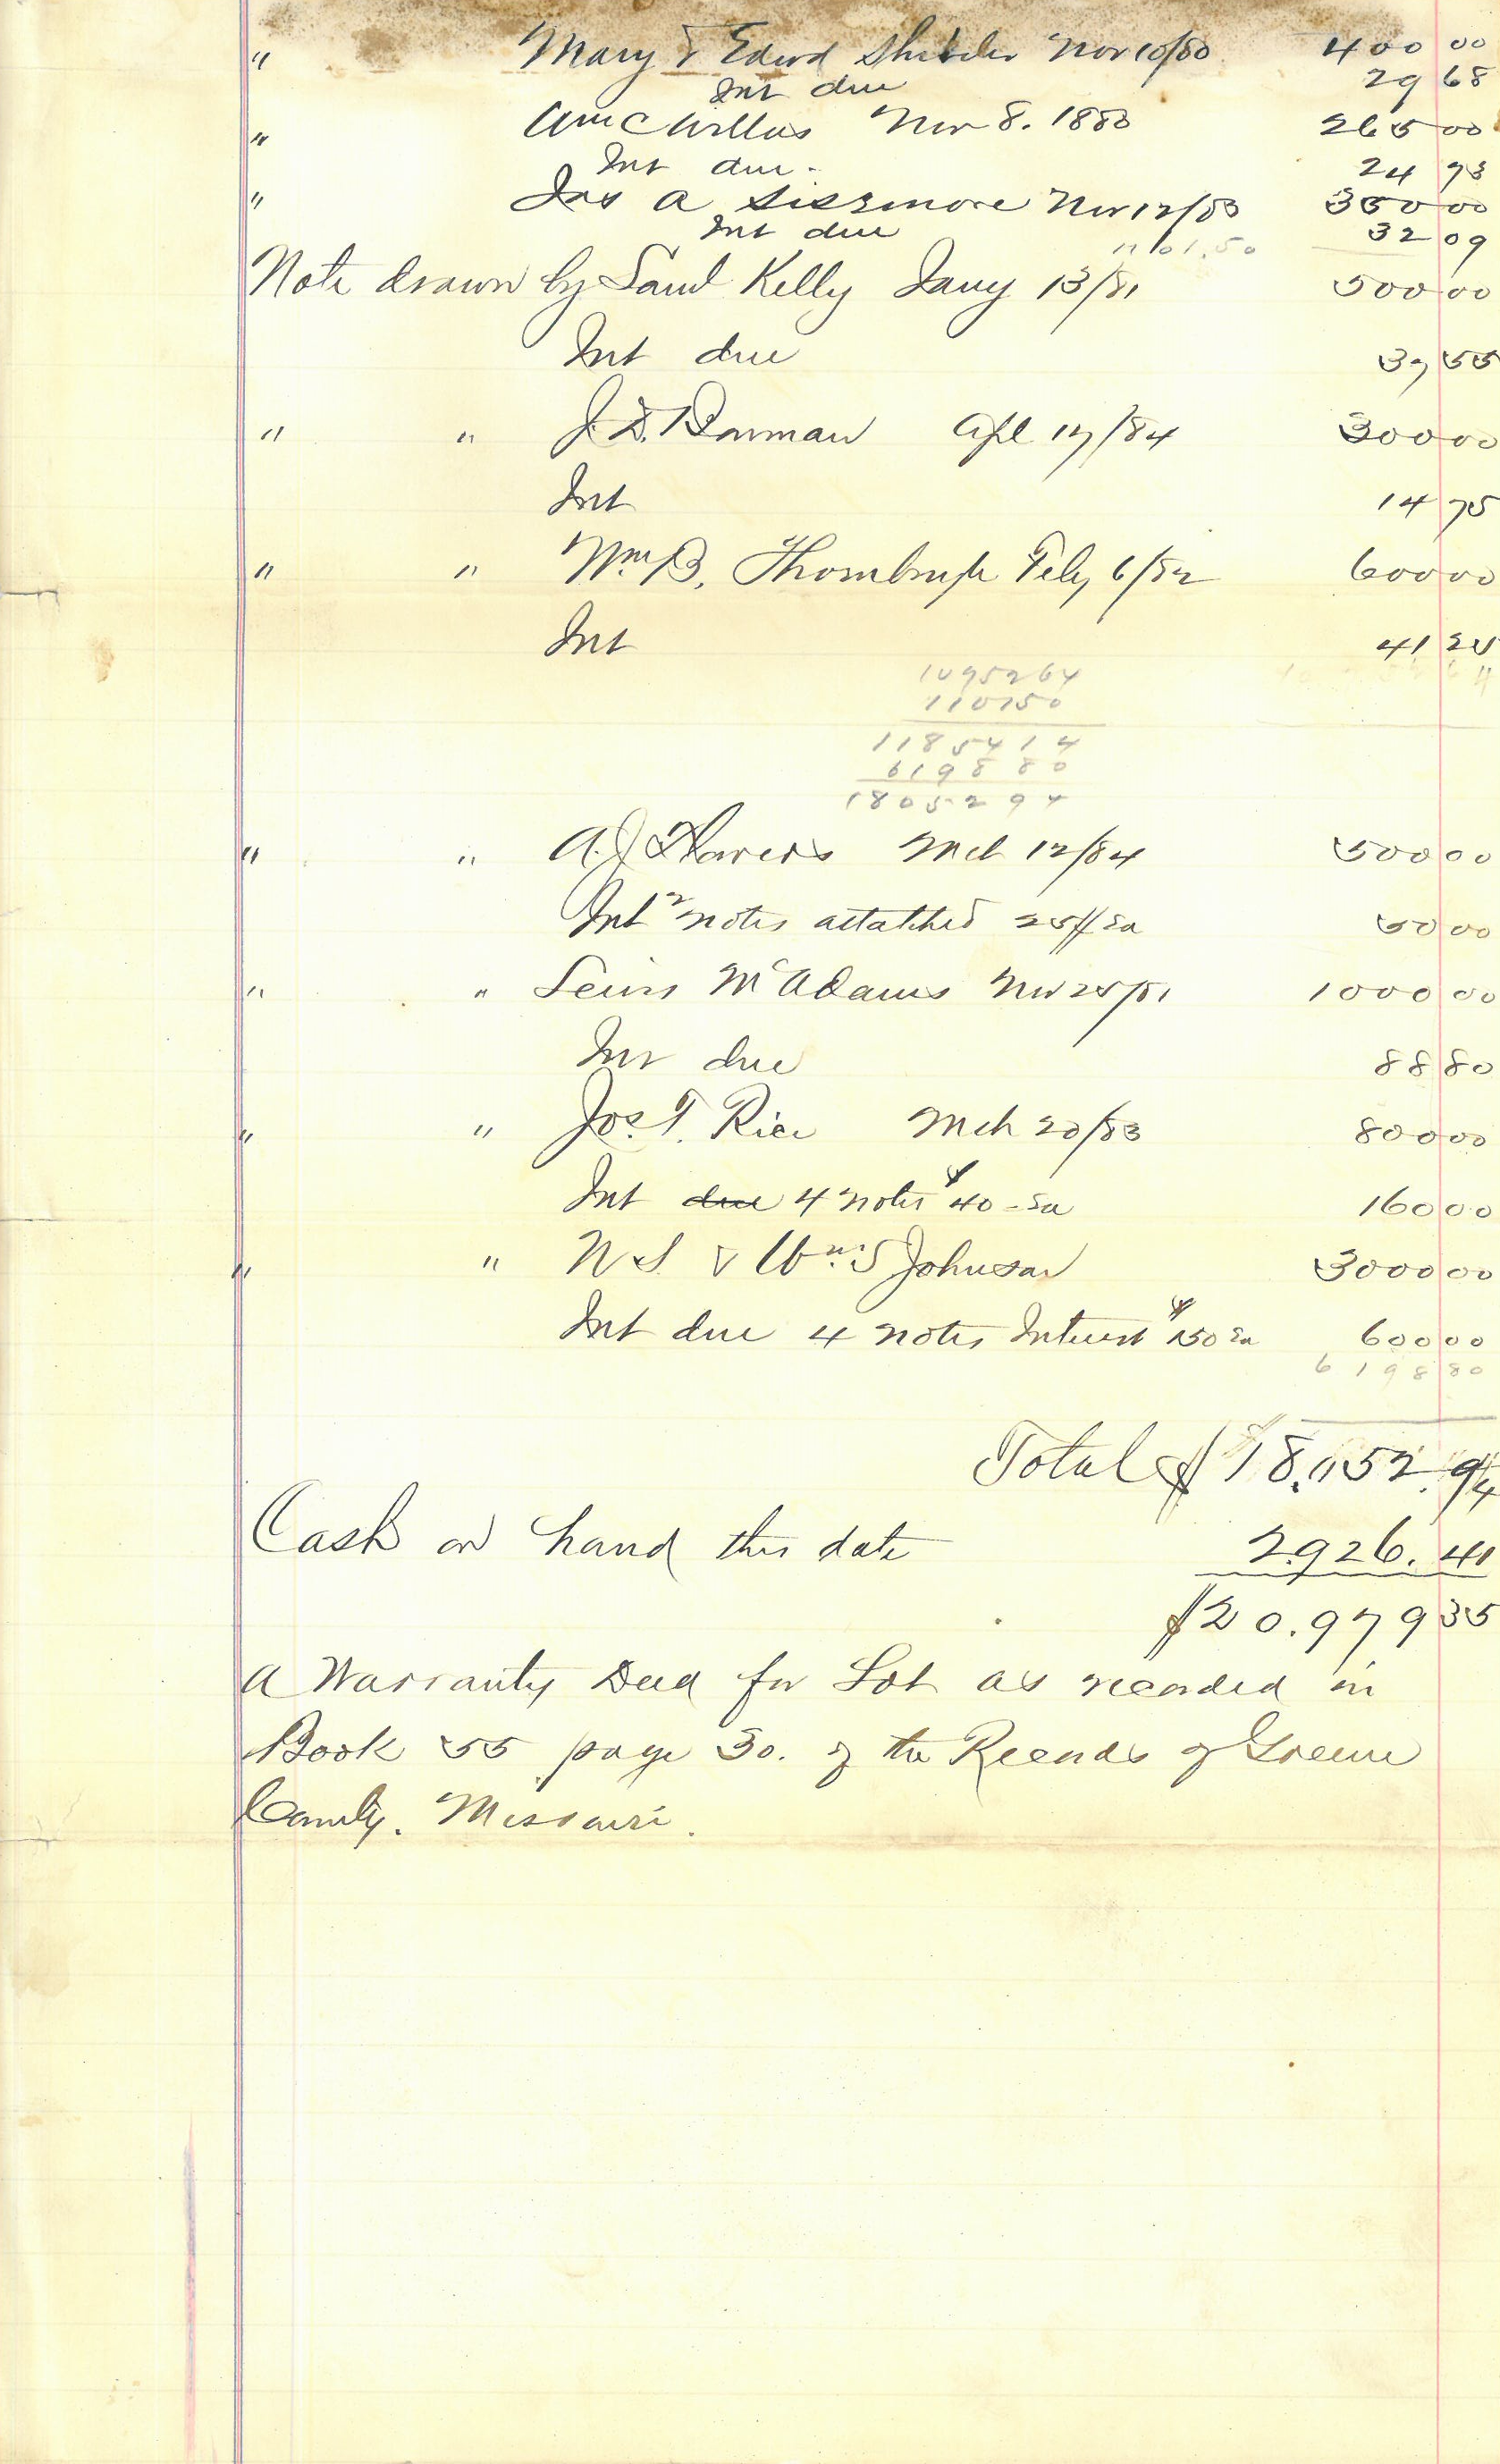 " Mary & Edwd Nov 10/80 400 00
Int due 29 68
" Wm C Nov 8. 1880 265 00
Int due 24 93
" Jas A Sizemore Nov 12/80 350 00
Int due 32 09
1101.50
Note drawn by Saml Kelly Jany 13/81 500 00
Int due 37 55
" " J. D. Borman Apl 17/84 300 00
Int 14 75
" " Wm B. Thornbrugh Feby 6/82 600 00
Int 41 25
1095264
110150
1185414
619880
1805294
" " A. J. Mch 12/84 500 00
Int 2 notes attatched 25// Ea 50 00
" " Lewis McAdams Nov 25/81 1000 00
Int due 88 80
" " Jos. T. Rice Mch 20/83 800 00
Int due 4 notes $40 - Ea 160 00
" " W S & Wm S Johnson 3000 00
Int due 4 notes Interest $150 Ea 600 00
6198 80
Total $18,052.94
Cash on hand this date 2926.41
$20.979 35
A Warranty Deed for Lot as recorded in
Book 55 page 30. of the Records of Greene
County. Missouri.